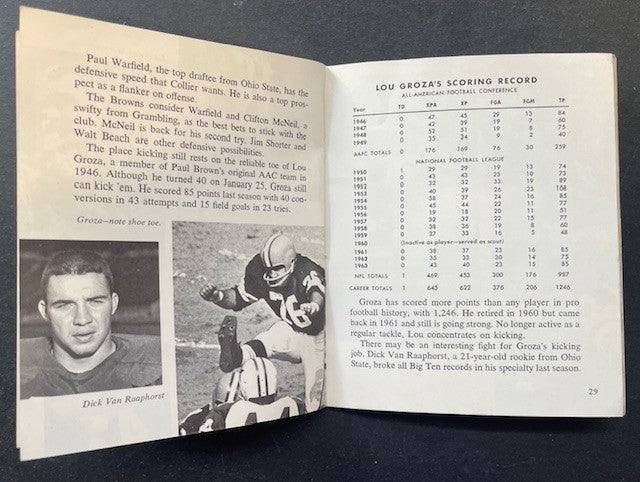 Paul Warfield, the top draftee from Ohio State, has the
defensive speed that Collier wants. He is also a top pros-
pect as a flanker on offense.
The Browns consider Warfield and Clifton McNeil, a
swifty from Grambling, as the best bets to stick with the
club. McNeil is back for his second try. Jim Shorter and
Walt Beach are other defensive possibilities.
The place kicking still rests on the reliable toe of Lou
Groza, a member of Paul Brown's original AAC team in
1946. Although he turned 40 on January 25, Groza still
can kick 'em. He scored 85 points last season with 40 con-
versions in 43 attempts and 15 field goals in 23 tries.
Groza—note shoe toe.
76
Dick Van Raaphorst
LOU GROZA'S SCORING RECORD
ALL-AMERICAN FOOTBALL CONFERENCE
Year TD XPA XP FGA FGM TP
1946 0 47 45 29 13 84
1947 0 42 39 19 7 60
1948 0 52 51 19 8 75
1949 0 35 34 9 2 40
AAFC TOTALS 0 176 169 76 30 259
NATIONAL FOOTBALL LEAGUE
1950 1 29 29 19 13 74
1951 0 43 43 23 10 73
1952 0 32 32 33 19 89
1953 0 40 39 26 23 108
1954 0 38 37 24 16 85
1955 0 45 44 22 11 77
1956 0 19 18 20 11 51
1957 0 32 32 22 15 77
1958 0 38 36 19 8 60
1959 0 37 33 16 5 48
1960 (Inactive as player—served as scout)
1961 0 38 37 23 16 85
1962 0 35 33 30 14 75
1963 0 43 40 23 15 85
NFL TOTALS 1 469 453 300 176 987
CAREER TOTALS 1 645 622 376 206 1246
Groza has scored more points than any player in pro
football history, with 1,246. He retired in 1960 but came
back in 1961 and still is going strong. No longer active as
a regular tackle, Lou concentrates on kicking.
There may be an interesting fight for Groza's kicking
job. Dick Van Raaphorst, a 21-year-old rookie from Ohio
State, broke all Big Ten records in his specialty last season.
29